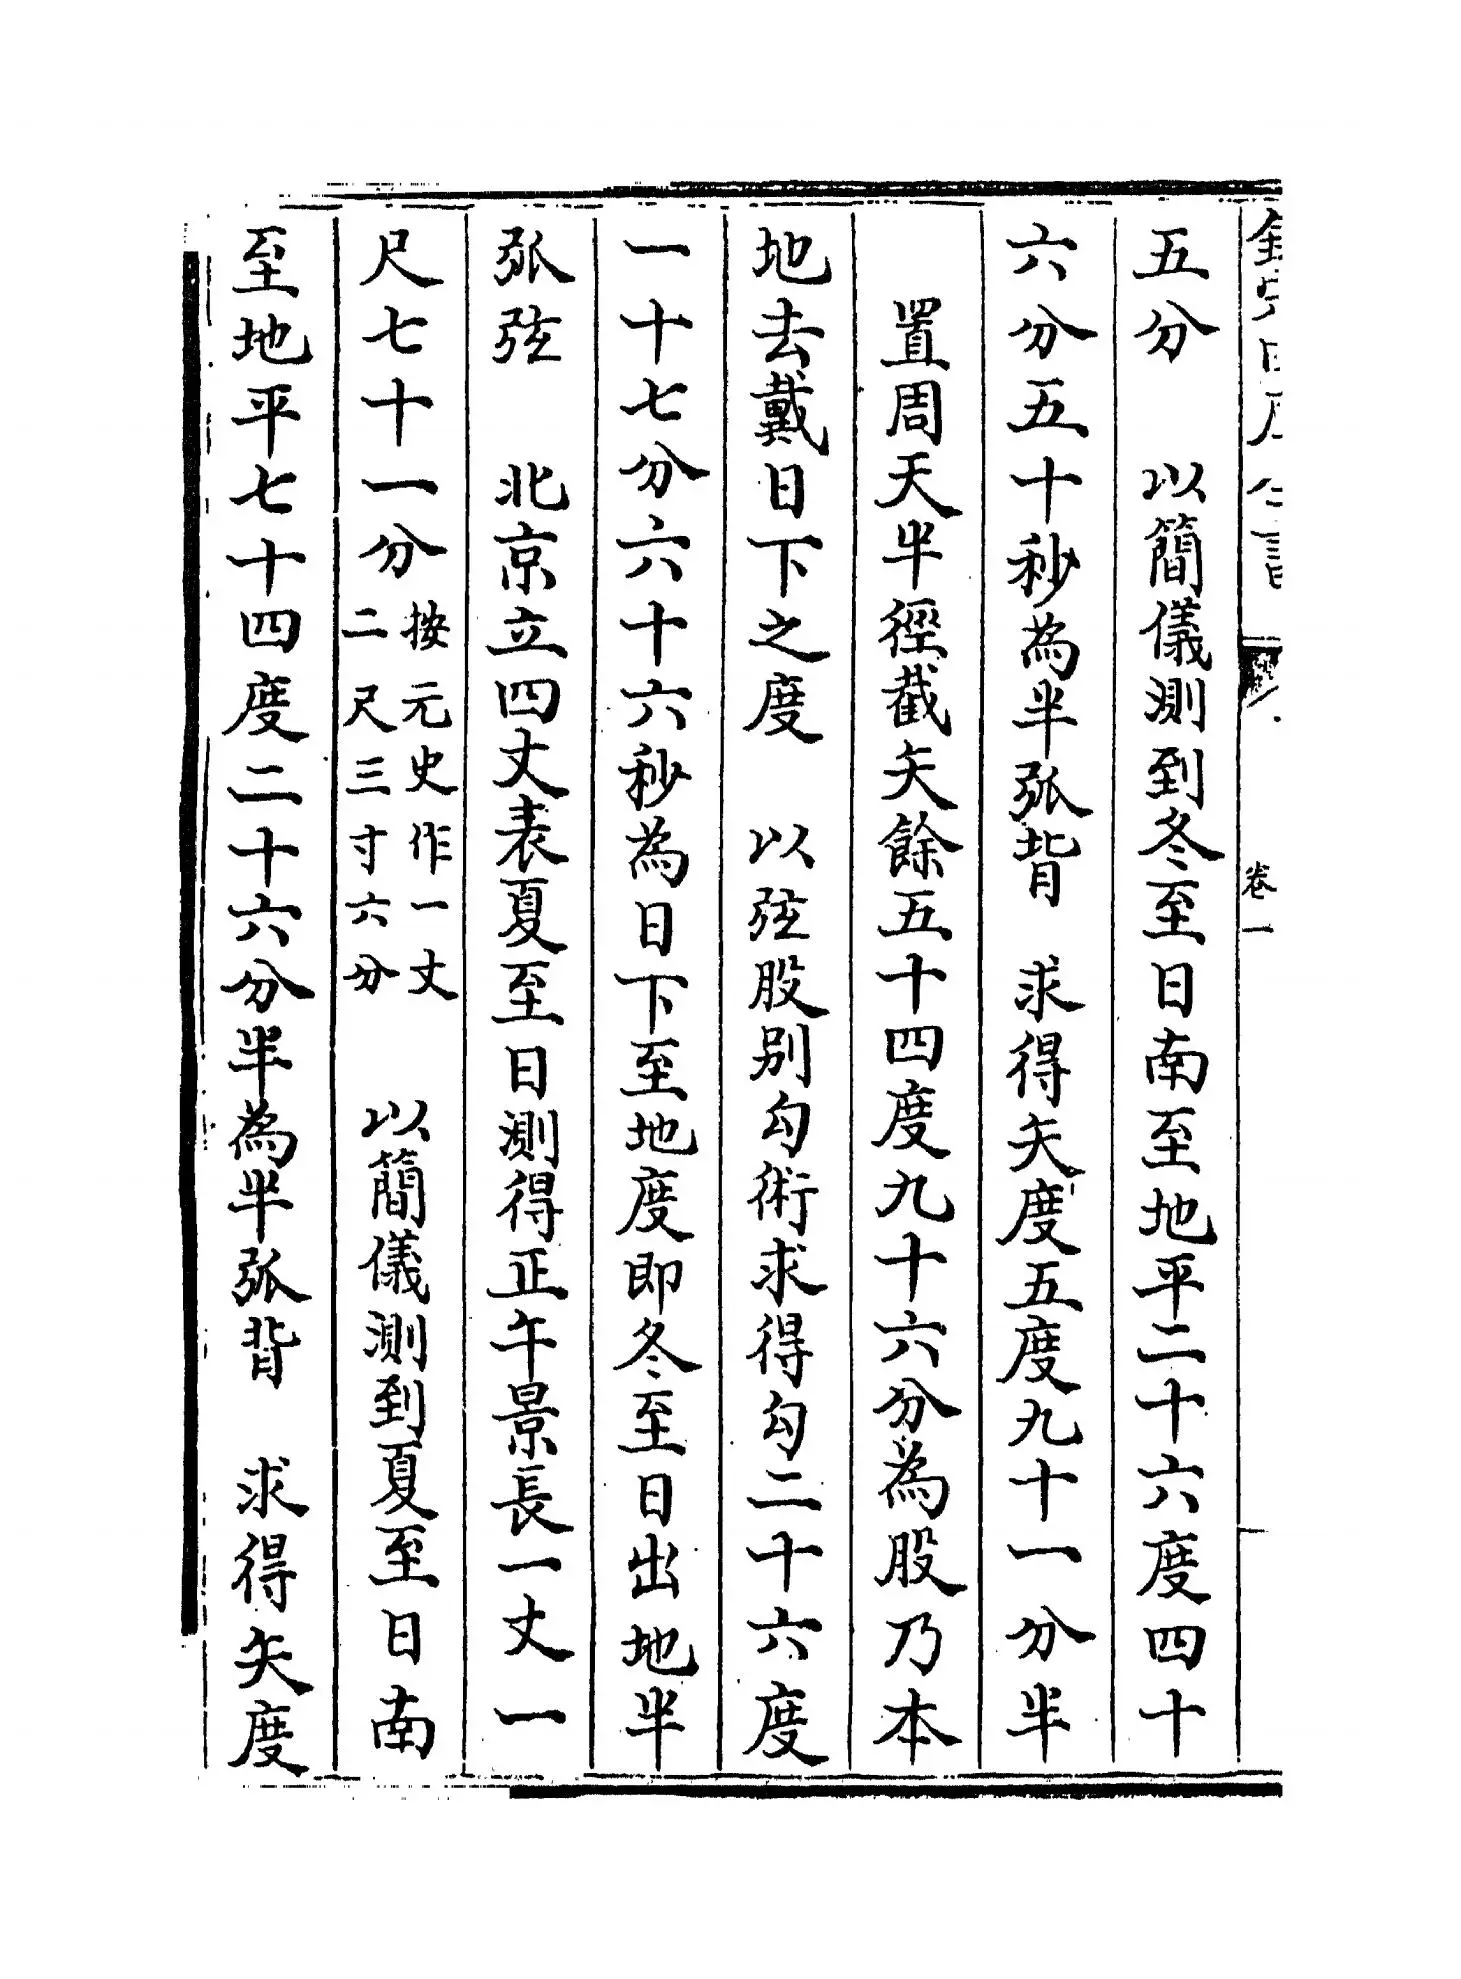 卷一
五分　以簡儀測到冬至日南至地平二十六度四十
六分五十秒為半弧背　求得矢度五度九十一分半
置周天半徑截矢餘五十四度九十六分為股乃本
地去戴日下之度　以弦股别勾術求得勾二十六度
一十七分六十六秒為日下至地度即冬至日出地半
弧弦　北京立四丈表夏至日測得正午景長一丈一
尺七十一分按元史作一丈二尺三寸六分　以簡儀測到夏至日南
至地平七十四度二十六分半為半弧背　求得矢度